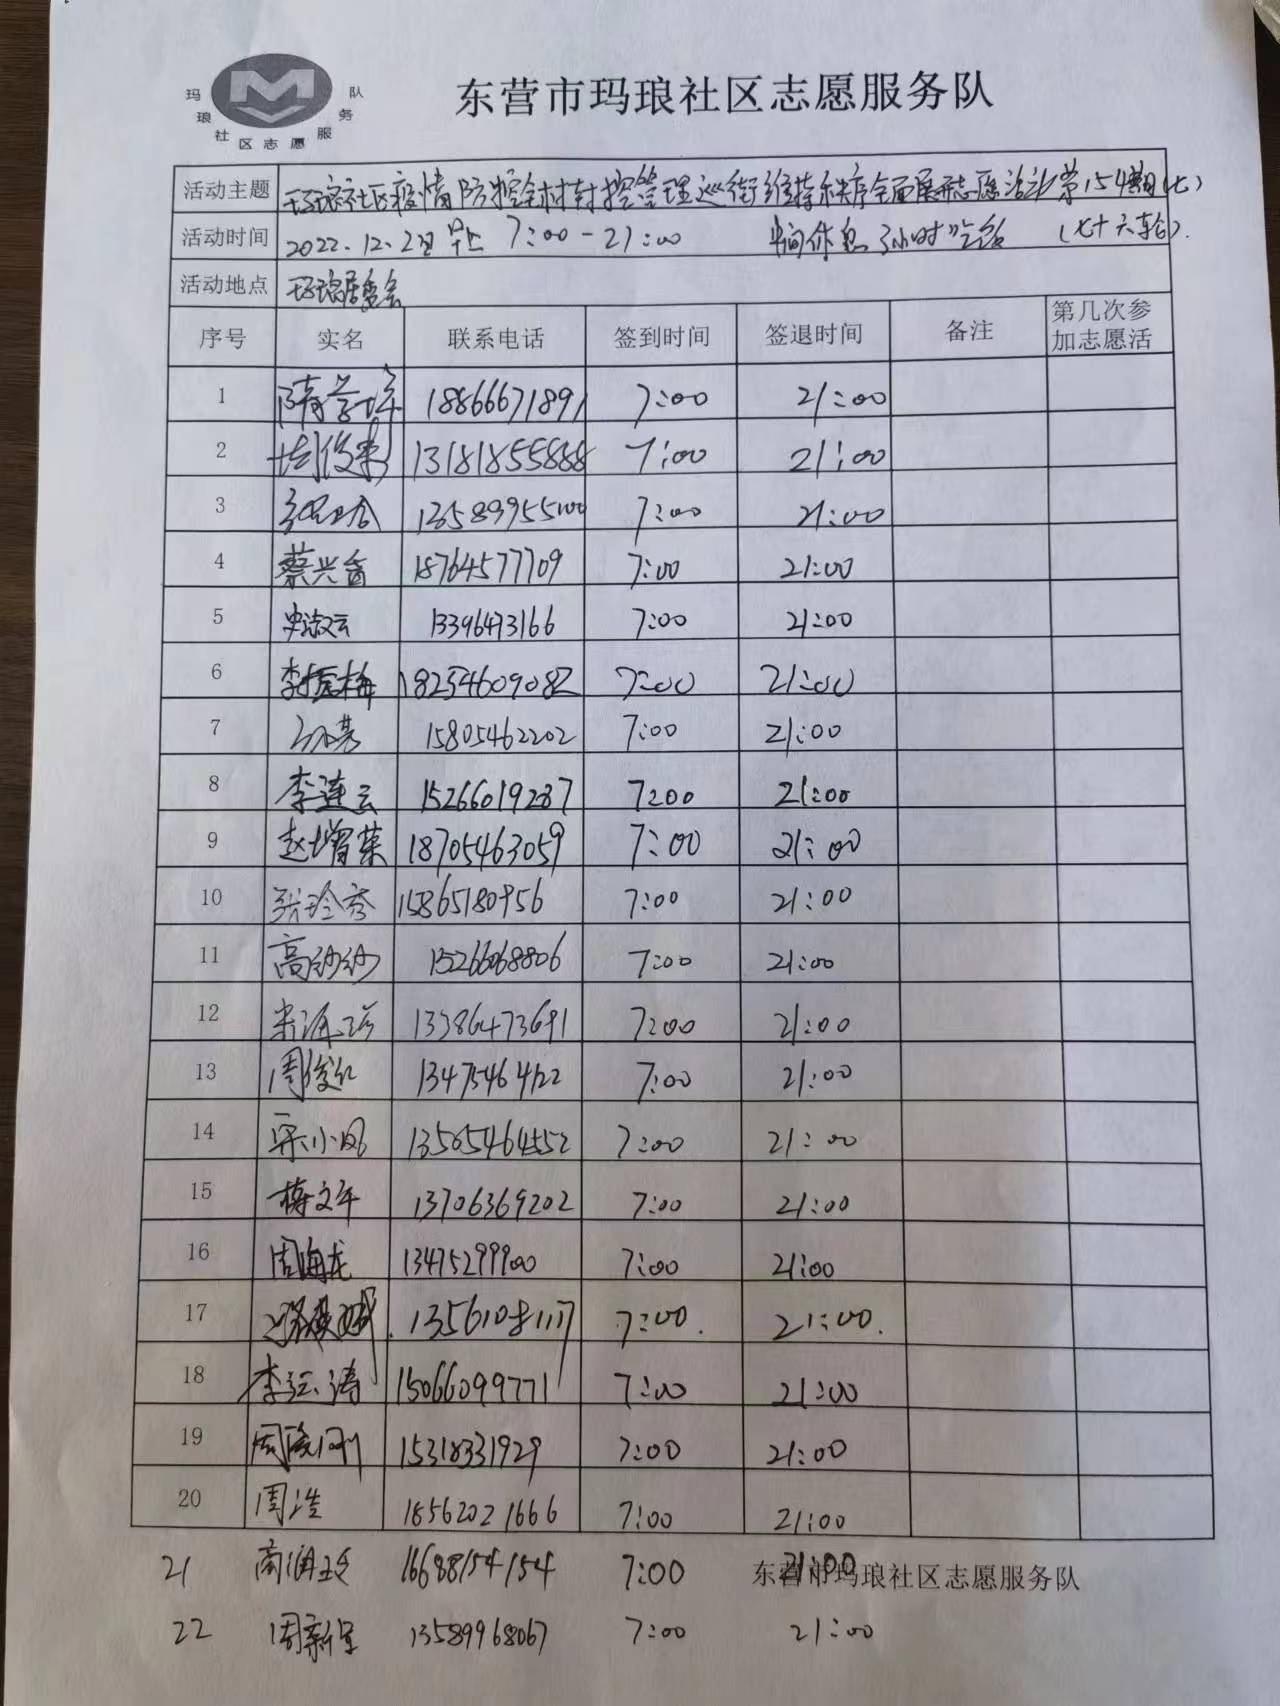 玛琅社区志愿服务队
东营市玛琅社区志愿服务队
活动主题 玛琅社区疫情防控全村封控管理巡街维持秩序全面展开志愿活动第154期(七)
活动时间 2022.12.2日早上 7:00-21:00 中间休息3小时吃饭 (七十六轮).
活动地点 玛琅居委会
序号 实名 联系电话 签到时间 签退时间 备注 第几次参
加志愿活
1 18866671891 7:00 21:00
2 13181855888 7:00 21:00
3 13589955100 7:00 21:00
4 蔡兴香 18764577709 7:00 21:00
5 史淑云 13396473166 7:00 21:00
6 李振梅 18254609082 7:00 21:00
7 15805462202 7:00 21:00
8 李莲云 15266019287 7:00 21:00
9 赵增荣 18705463059 7:00 21:00
10 张玲秀 15865180956 7:00 21:00
11 高纱纱 15266068806 7:00 21:00
12 7:00 21:00
13 周俊红 13475464122 7:00 21:00
14 宋小凤 13505464552 7:00 21:00
15 蒋文军 13706369202 7:00 21:00
16 周海龙 13475299900 7:00 21:00
17 7:00. 21:00.
18 李江涛 15066099771 7:00 21:00
19 周晓刚 15318331929 7:00 21:00
20 周浩 18562021666 7:00 21:00
21 16688154154 7:00 21:00
东营市玛琅社区志愿服务队
22 周新堂 13589968067 7:00 21:00